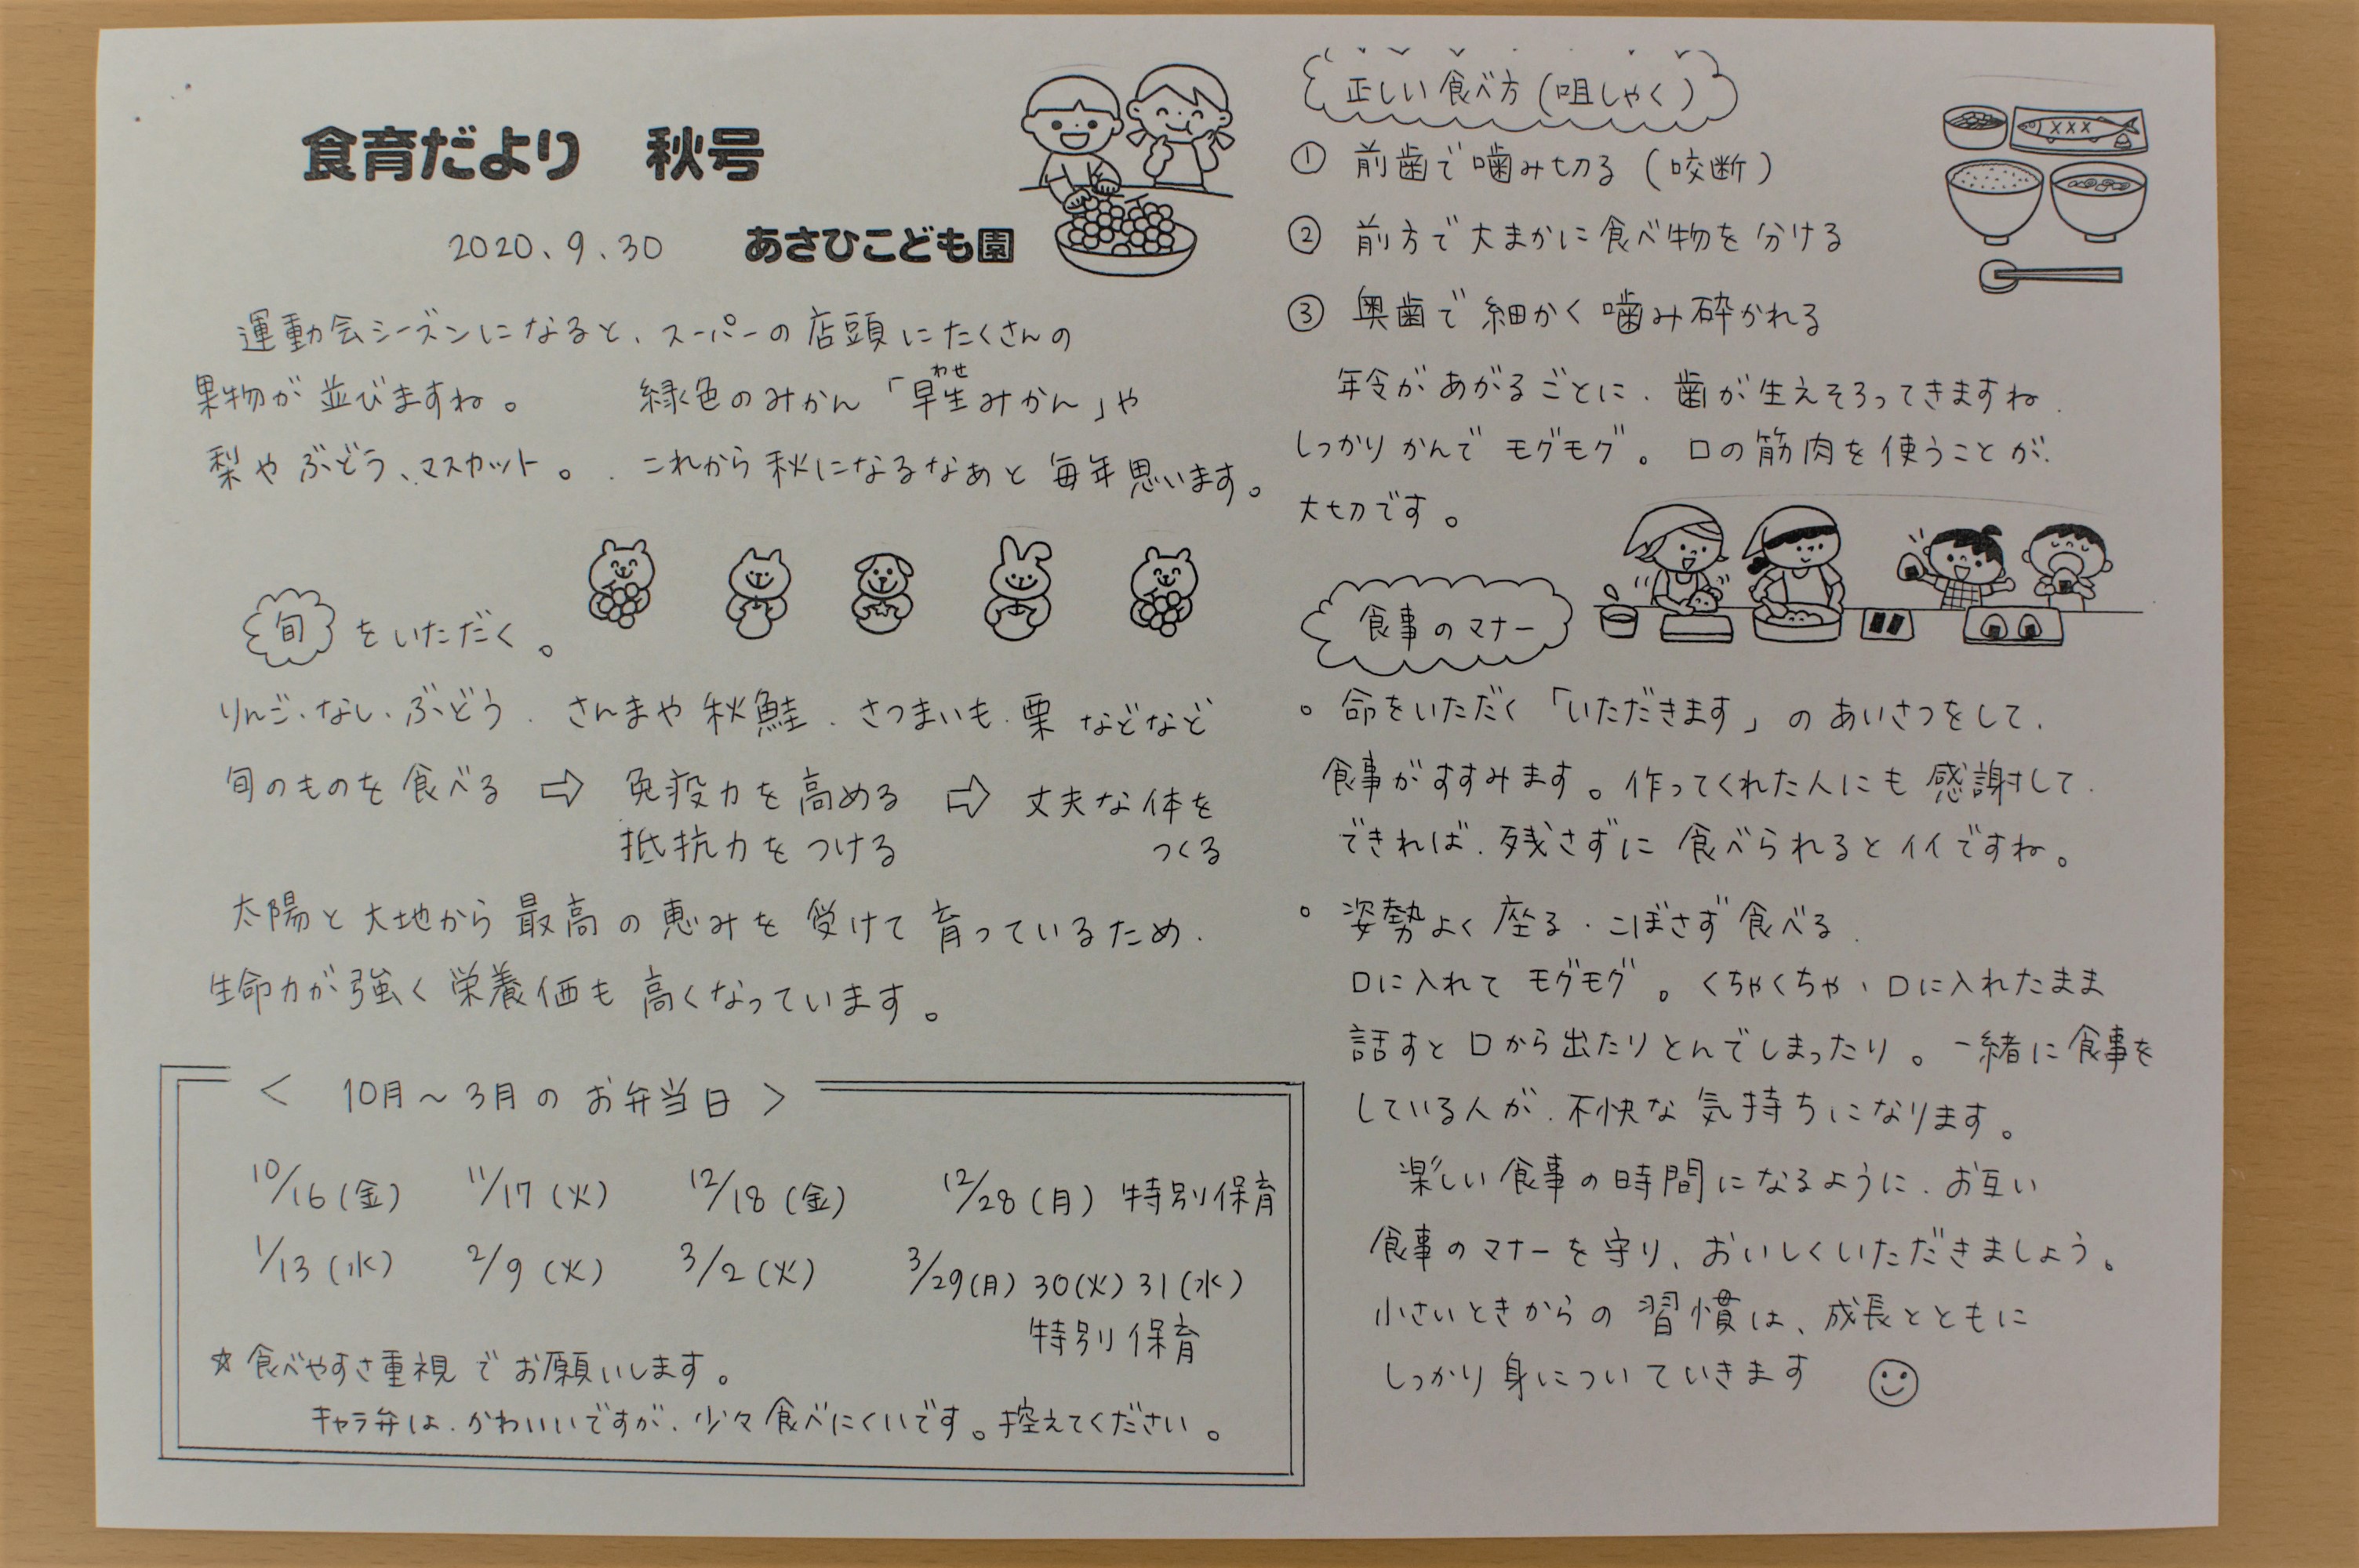 食育だより 秋号
2020、9、30 あさひこども園
運動会シーズンになると、スーパーの店頭にたくさんの
果物が並びますね。 緑色のみかん「早生みかん」や
わせ
梨やぶどう、マスカット。 これから秋になるなぁと毎年思います。
旬をいただく。
りんご、なし、ぶどう、さんまや秋鮭、さつまいも、栗などなど
旬のものを食べる ⇨ 免疫力を高める ⇨ 丈夫な体を
抵抗力をつける つくる
太陽と大地から最高の恵みを受けて育っているため、
生命力が強く栄養価も高くなっています。
< 10月~3月のお弁当日 >
10/16(金) 11/17(火) 12/18(金) 12/28(月)特別保育
1/13(水) 2/9(火) 3/2(火) 3/29(月)30(火)31(水)
特別保育
☆食べやすさ重視でお願いします。
キャラ弁は、かわいいですが、少々食べにくいです。控えてください。
正しい食べ方(咀しゃく)
① 前歯で噛み切る(咬断)
② 前方で大まかに食べ物を分ける
③ 奥歯で細かく噛み砕かれる
年令があがるごとに、歯が生えそろってきますね。
しっかりかんでモグモグ。口の筋肉を使うことが、
大切です。
食事のマナー
○ 命をいただく「いただきます」のあいさつをして、
食事がすすみます。作ってくれた人にも感謝して、
できれば、残さずに食べられるとイイですね。
○ 姿勢よく座る・こぼさず食べる。
口に入れてモグモグ。くちゃくちゃ、口に入れたまま
話すと口から出たりとんでしまったり。一緒に食事を
している人が、不快な気持ちになります。
楽しい食事の時間になるように、お互い
食事のマナーを守り、おいしくいただきましょう。
小さいときからの習慣は、成長とともに
しっかり身についていきます